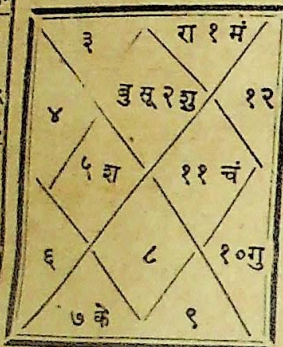 ३ रा १ मं
बु सू २ शु १२
४
५ श ११ चं
६ ८ १० गु
७ के ९